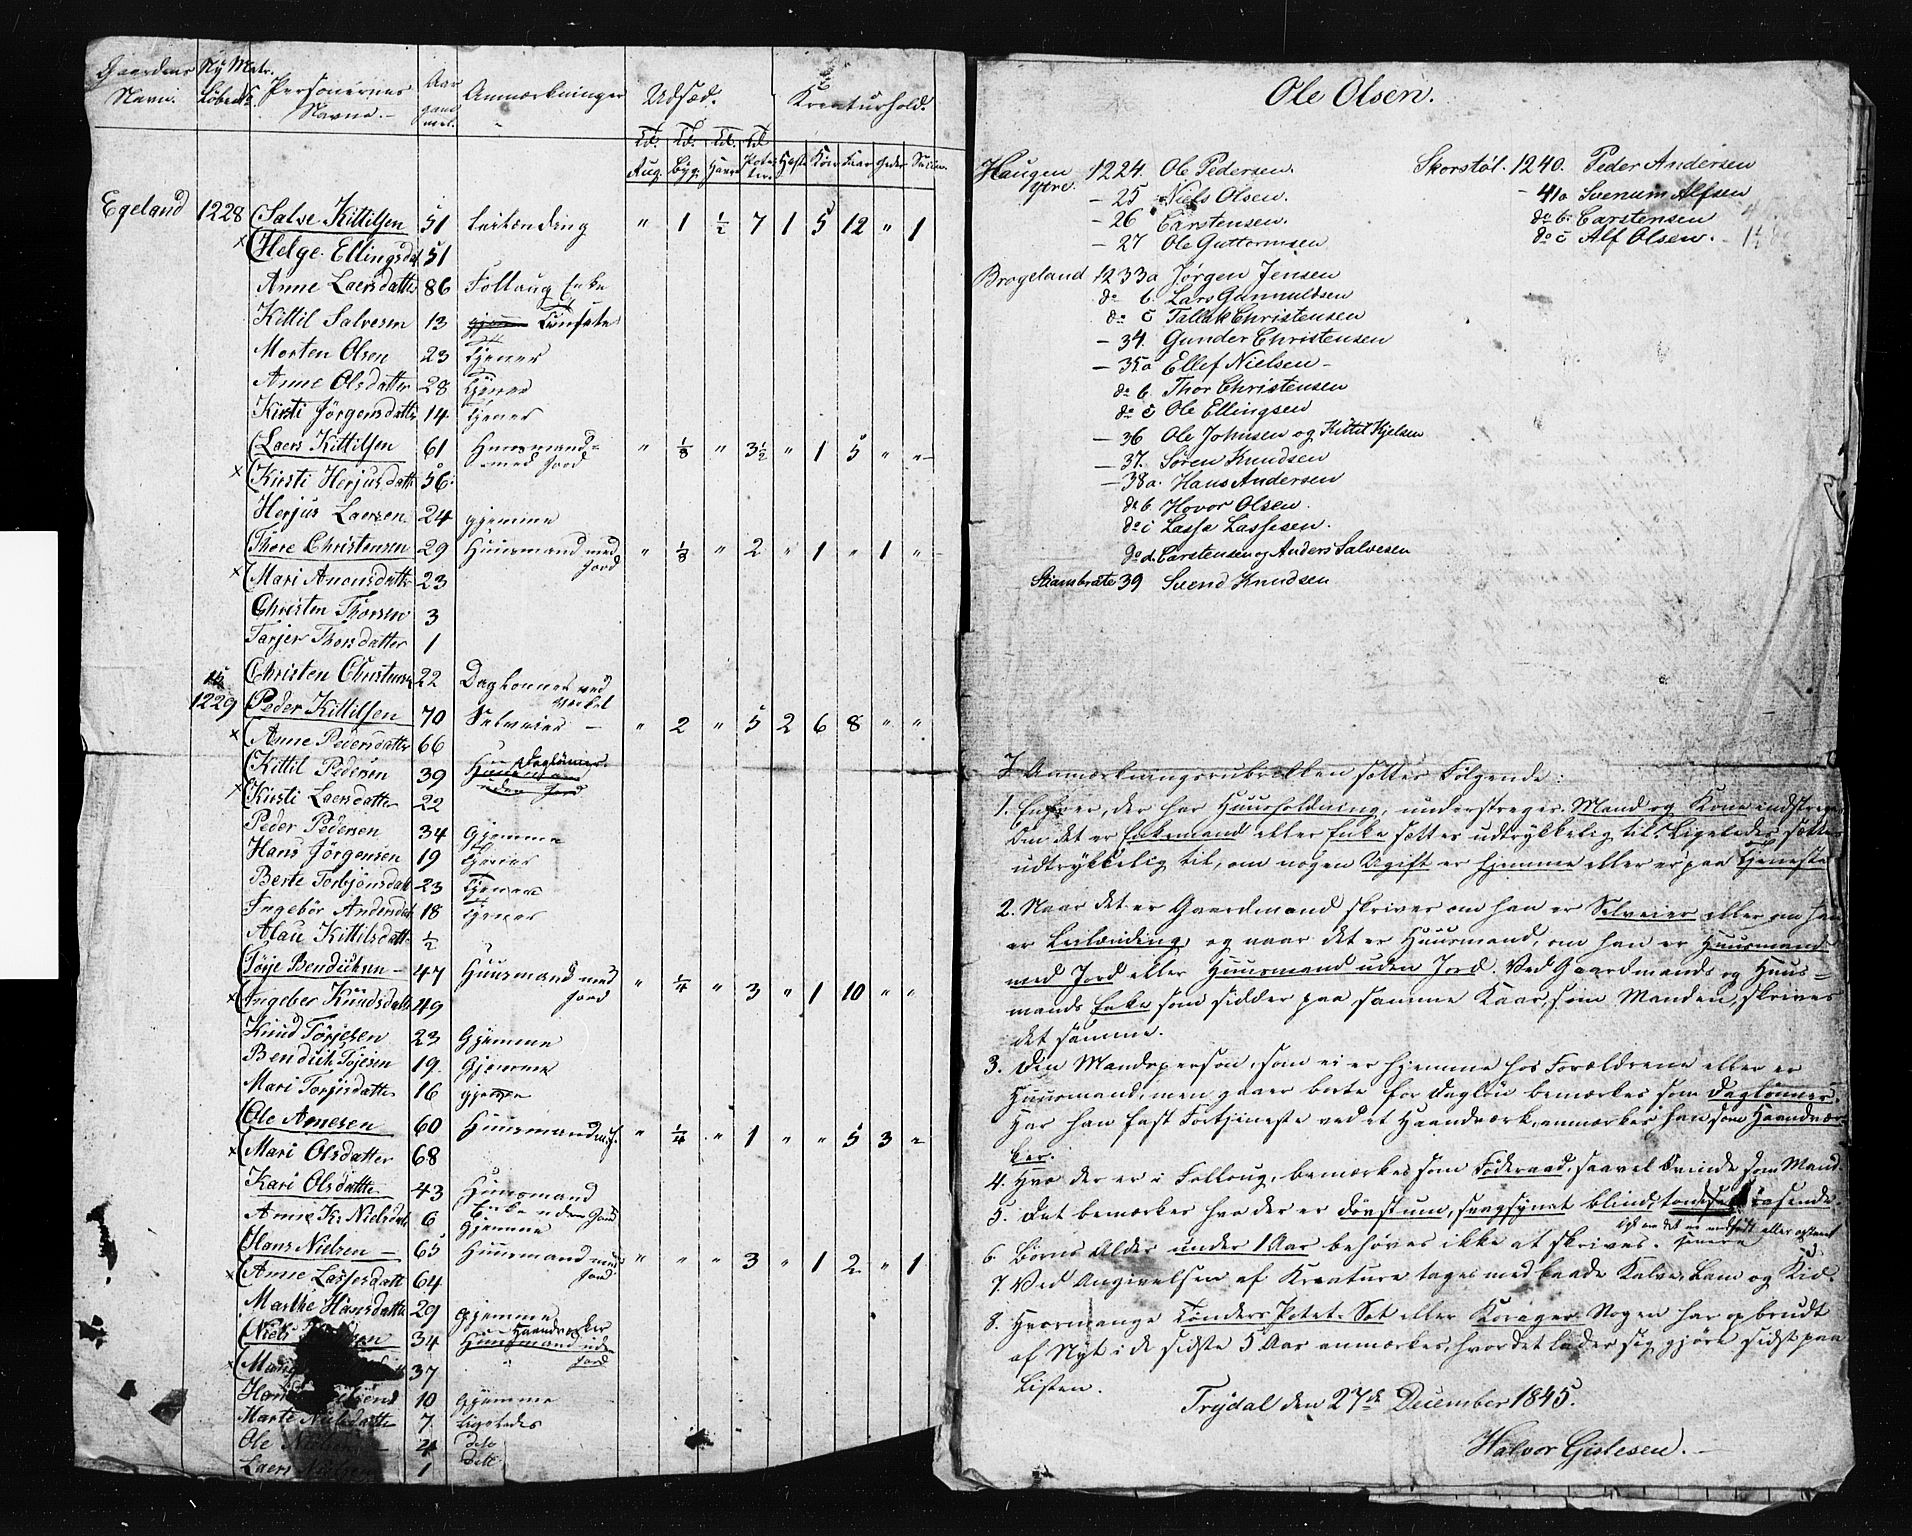 Gaardens Navn. Ny Matr. Løbe No Personernes Navne. Aar gammel. Anmærkninger Udsæd. Kreaturhold.
Td. Rug. Td. Byg. Td. Havre Td. Poteter Heste Köer Faar Geder Sviin.
Egeland 1228 Salve Kittilsen 51 Leilænding " 1 ½ 7 1 5 12 " 1
x Helge Ellingsdat 51
Anne Laersdatter 86 Follaug Enke
Kittil Salvesen 13
Morten Olsen 23 Tjener
Anne Olsdatter 28 Tjener
Kirsti Jörgensdatter 14 Tjener
Laers Kittilsen 61 Huusmand med Jord " ⅛ " 3½ " 1 5 " "
x Kirsti Herjusdatt 56
Herjus Laersen 24 gjemme
Thore Christensen 29 Huusmand med Jord " ⅛ " 2 " 1 " 1 "
x Mari Anonsdatter 23
Christen Thorsen 3
Tarjer Thorsdatter 1
Christen Christens 22 Daglønner ved Værket
1229 Peder Kittilsen 70 Selveier " 2 " 5 2 6 8 " "
x Anne Pedersdatter 66
Kittil Pedersen 39 Huusmand uden Jord Daglönner
x Kirsti Laersdatter 22
Peder Pedersen 34 Gjemme
Hans Jörgensen 19 Tjener
Berte Torbjönsdatt 23 Tjener
Ingebör Andersdat 18 Tjener
Alau Kittilsdatt ½
Töije Bendiksen 47 Huusmand med Jord " ¼ " 3 " 1 10 " "
x Ingeber Knudsdatt 49
Knud Törjesen 23 Gjemme
Bendik Töjesen 19 Gjemme
Mari Torjisdatter 16 gjemme
Ole Arnesen 60 Huusmand m. J. " ¼ " 1 " " 5 3 "
x Mari Olsdatter 68
Kari Olsdatter 43 Huusmand Enke uden Jord
Anne K: Nielsdat 6 Gjemme
Hans Nielsen 65 Huusmand med Jord " " " 3 " 1 2 " 1
x Anne Lassesdatt 64
Marthe Hansdatter 29 Gjemme
Niels 34 Huusmand uden Jord Haandverker
x 37
Hans 10 Gjemme
Marte Nielsdatter 7 Ligeledes
Ole Nielsen 4 dito
Laers Nielsen 1 ditt
Ole Olsen.
Haugen ytre. 1224. Ole Pedersen.
- 25 Niels Olsen.
- 26 Carstensen.
- 27 Ole Guttormsen
Brogeland 1233a Jørgen Jensen
do b. Lars Gunnuldsen
do c Tallak Christensen
- 34. Gunder Christensen
- 35a Ellef Nielsen -
do b. Thor Christensen
do c Ole Ellingsen
- 36 Ole Johnsen og Kittil Kjelsen
- 37. Søren Knudsen
- 38a. Hans Andersen
do b Hovor Olsen.
do c Lasse Lassesen.
do d. Carstensen og Anders Salvesen
39 Svend Knudsen
Skorstøl. 1240. Peder Andersen
- 41a Svenum Alfsen
do b. Carstensen
do c Alf Olsen.
I Anmærkningsrubrikken sættes Følgende:
1. Enhver, der har Huusholdning, understreges. Mand og Kone indstreges,
Om det er Enkemand eller Enke sættes udtrykkelig til. Ligeledes sættes
udtrykkelig til, om nogen Ugift er hjemme eller er paa Tjeneste
2. Naar det er Gaardmand skrives om han er Selveier eller om han
er Leilænding, og naar det er Huusmand, om han er Huusmand
med Jord eller Huusmand uden Jord. Ved Gaardmands og Huus-
mands Enke som sidder paa samme Kaar, som Manden, skrives
det samme.
3. Den Mandsperson, som ei er hjemme hos Forældrene eller er
Huusmand, men gaaer borte for Dagløn bemærkes som Daglönner.
Har han fast Fortjeneste ved et Haandværk, anmærkes han som Haandvær-
ker.
4. Hvo der er i Follaug, bemærkes som Föderaad, saavel Qvinde som Mand.
5. Det bemærkes hvo der er døvstum, svagsynet blind, rasende
6 Børns Alder under 1 Aar behøves ikke at skrives.
7. Ved Angivelsen af Kreature tages med baade Kalve, Lam og Kid.
8. Hvormange Tönders Potet-Sæt eller Kornager Nogen har opbrudt
af Nyt i de sidste 5 Aar anmærkes, hvor det lader sig gjøre sidst paa
Listen.
Trydal den 27de December 1845.
Halvor Gislesen. -